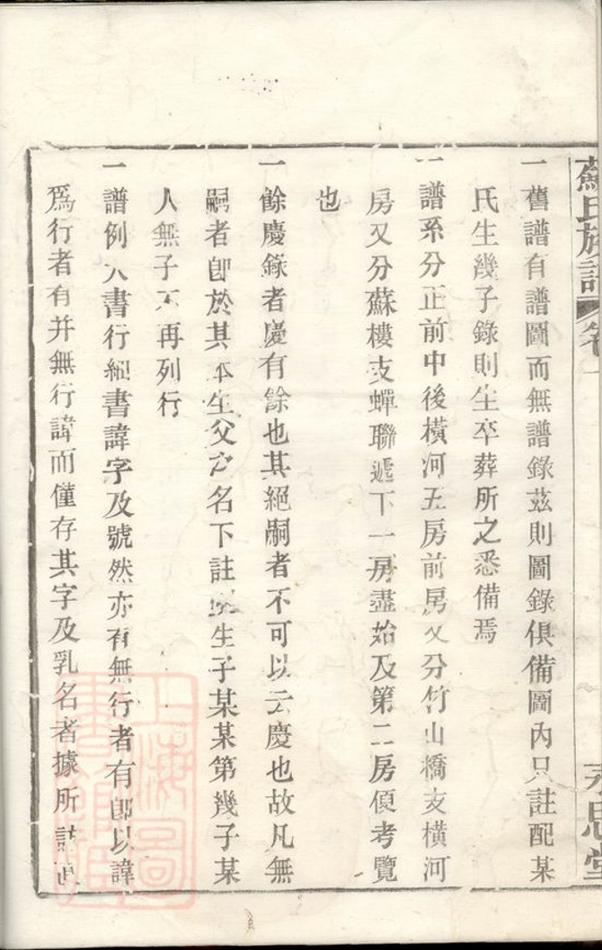 蘇氏族譜 卷一
永思堂
一舊譜有譜圖而無譜錄茲則圖錄俱備圖內只註配某
氏生幾子錄則生卒葬所之悉備焉
一譜系分正前中後橫河五房前房又分竹山橋支橫河
房又分蘇樓支蟬聯遞下一房盡始及第二房便考覽
也
一餘慶錄者慶有餘也其絕嗣者不可以云慶也故凡無
嗣者卽於其本生父之名下註以生子某某第幾子某
人無子不再列行
一譜例大書行細書諱字及號然亦有無行者有卽以諱
爲行者有并無行諱而僅存其字及乳名者據所註正
上海圖書館藏